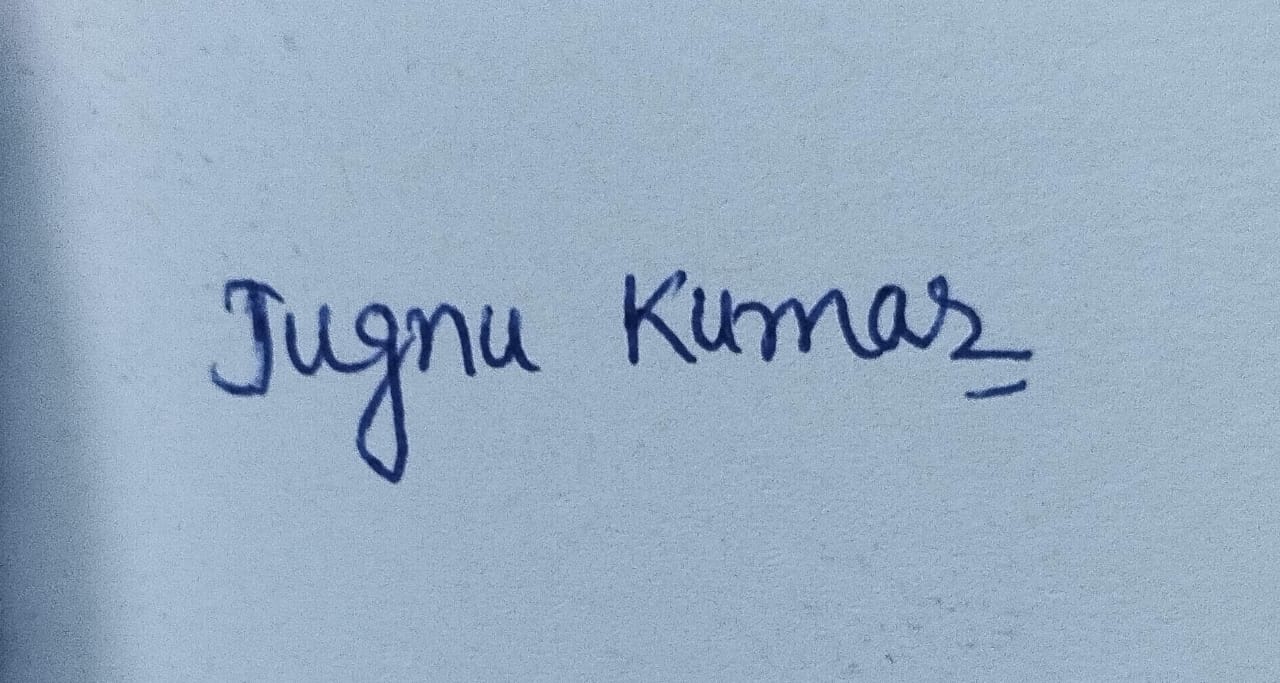 Jugnu Kumar